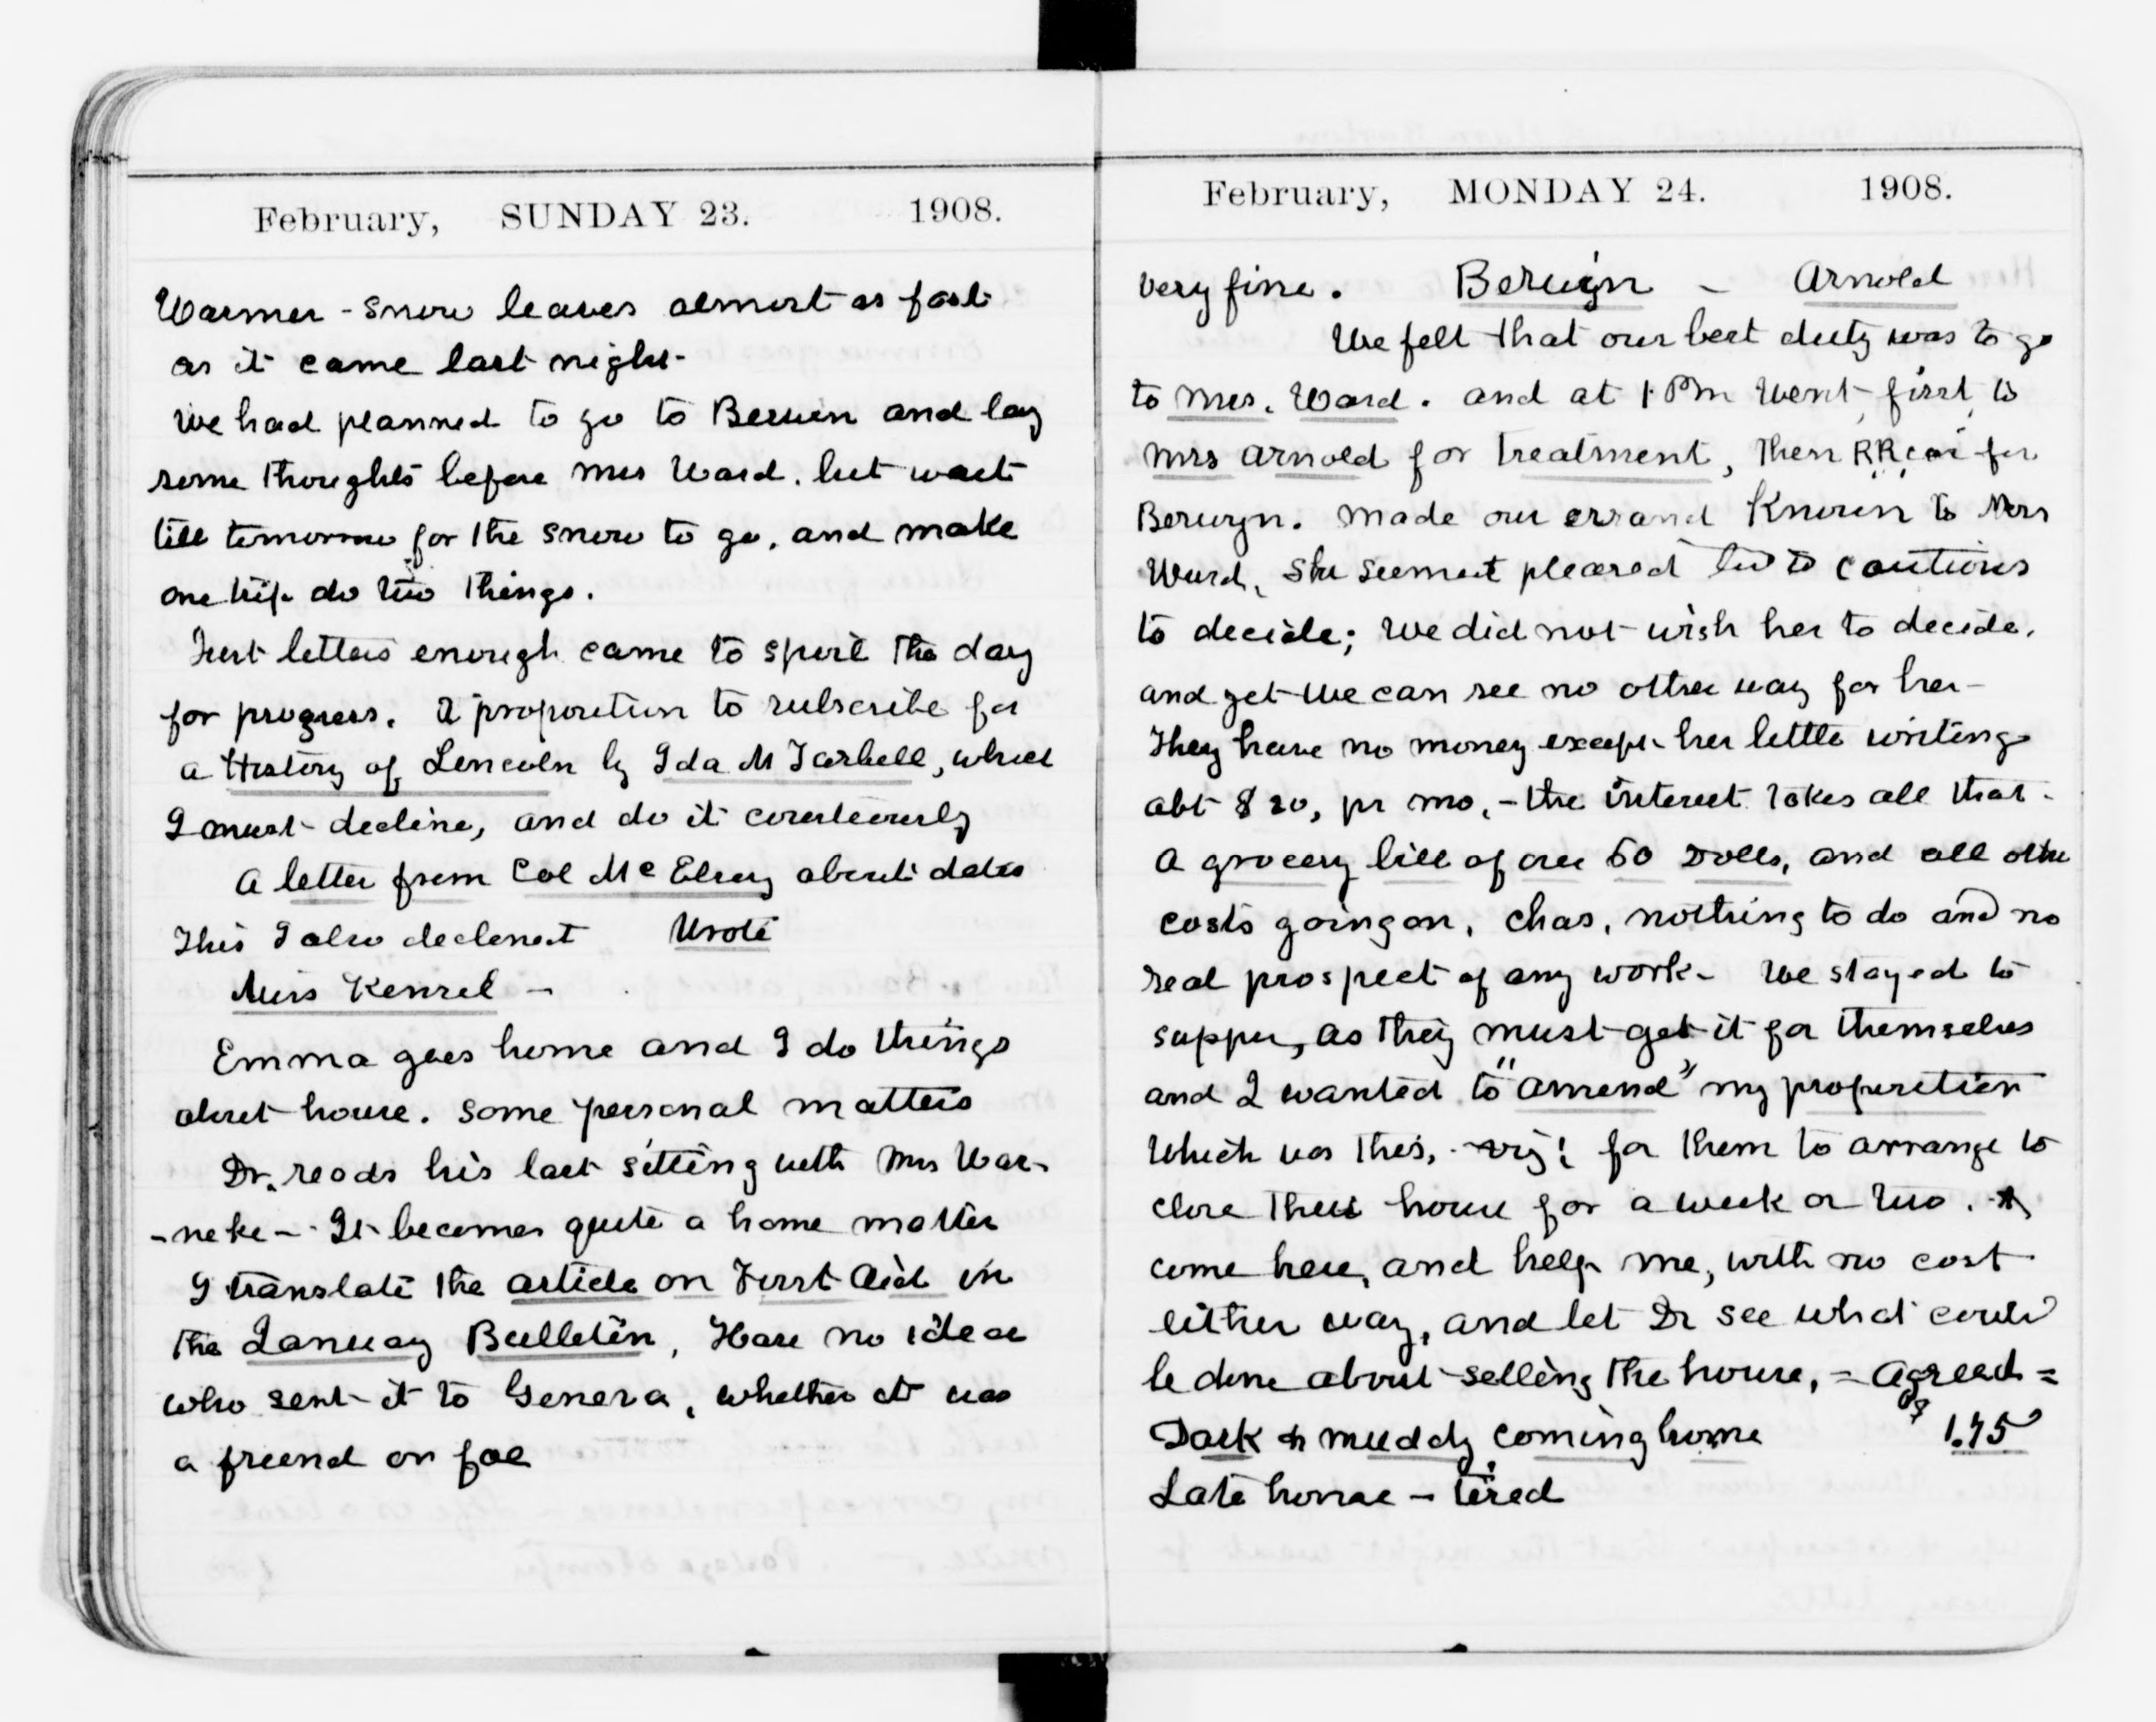 February, SUNDAY 23. 1908.
Warmer - snow leaves almost as fast
as it came last night -
We had planned to go to Berwin and lay
some thoughts before Mrs Ward. but wait
till tomorrow for the snow to go, and make
one trip do two things.
Just letters enough came to spoil the day
for progress. A proposition to subscribe for
a History of Lincoln by Ida M Tarbell, which
I must decline, and do it courteously
A letter from Col McElroy about dates
This I also declined Wrote
Miss Kenzel -
Emma goes home and I do things
about house. some personal matters
Dr. reads his last sitting with Mrs War-
-neke - It becomes quite a home matter
I translate the article on First Aid in
the January Bulletin, Have no idea
who sent it to Geneva, whether it was
a friend or foe
February, MONDAY 24. 1908.
very fine. Berwyn - Arnold
We felt that our best duty was to go
to Mrs. Ward. and at 1 Pm Went first to
Mrs Arnold for treatment, then RR car for
Berwyn. Made our errand Known to Mrs
Ward, She seemed pleased but to cautious
to decide; We did not wish her to decide,
and yet we can see no other way for her -
They have no money except her little writings
abt $20, pr mo, - the interest takes all that -
A grocery bill of over 60 Dolls, and all other
costs going on, Chas, nothing to do and no
real prospect of any work - We stayed to
supper, as they must get it for themselves
and I wanted to "amend" my proposition
Which was this, viz: for them to arrange to
close their house for a week or two.
come here, and help me, with no cost
either way, and let Dr see what could
be done about selling the house, = Agreed =
Dark & muddy coming home $ 1.75
Late home - tired